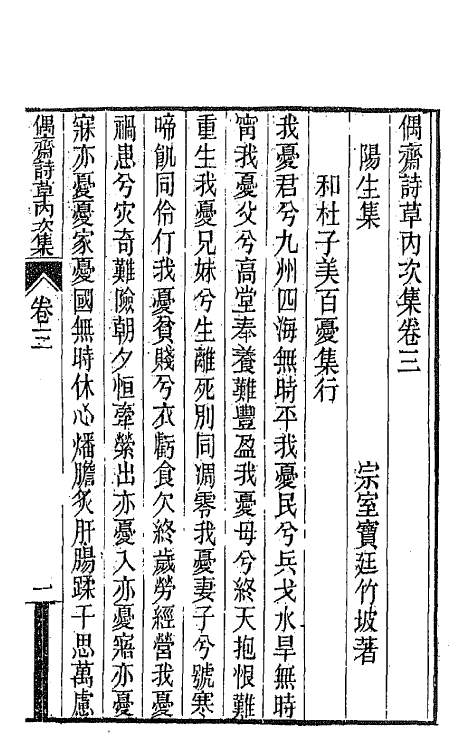 偶齋詩草內次集卷三
陽生集　宗室寶廷竹坡著
和杜子美百憂集行
我憂君兮九州四海無時平我憂民兮兵戈水旱無時
甯我憂父兮高堂奉養難豐盈我憂母兮終天抱恨難
重生我憂兄妹兮生離死別同凋零我憂妻子兮號寒
啼飢同伶仃我憂貧賤兮衣虧食欠終歲勞經營我憂
禍患兮灾奇難險朝夕恒牽縈出亦憂入亦憂寤亦憂
寐亦憂憂家憂國無時休心燔膽炙肝腸蹂千思萬慮
偶齋詩草內次集　卷三　一